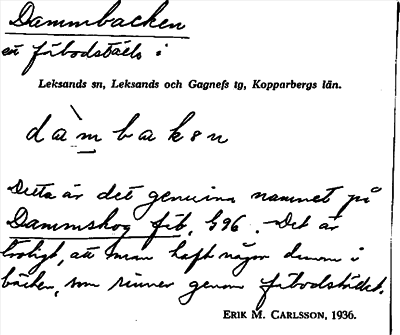 Dammbacken
ett fäbodställe i
Leksands sn, Leksands och Gagnefs tg, Kopparbergs län.
dàmbakən
Detta är det genuina namnet på
Dammskog fäb, §96. Det är
troligt, att man haft någon damm i
bäcken, som rinner genom fäbodstället.
ERIK M. CARLSSON, 1936.